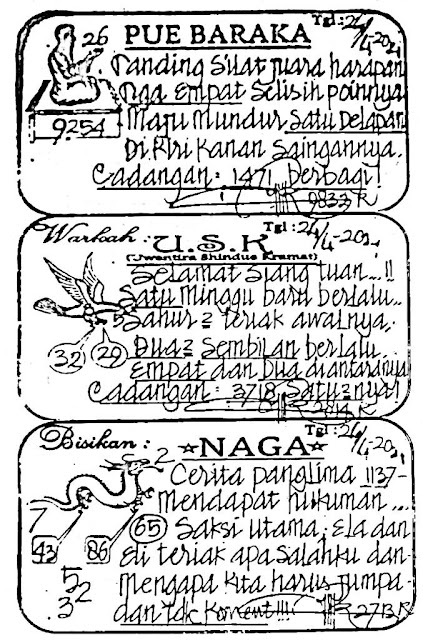 26 PUE BARAKA Tgl: 24/4-202
Tanding Silat juara harapan
Tiga Empat Selisih poinnya
9254 Maju Mundur Satu Delapan
Di Kiri Kanan Saingannya.
Cadangan: 1471 Berbagi!
9833 K
Warkah: U.S.K Tgl: 24/4-202
(Jwantira Shindus Kramat)
Selamat Siang tuan...!!
Satu Minggu baru berlalu...
5 Sahur2 teriak awalnya,
32 29 Dua2 Sembilan berlalu
Empat dan Dua diantaranya
Cadangan: 3718 Satu2nya!
2814 K
Bisikan: NAGA Tgl: 24/4-202
2 Cerita panglima 1137-
Mendapat hukuman...
7 65 Saksi utama, Ela dan
43 86 Eli teriak apa salahku dan
52 Mengapa kita harus jumpa
3 dan tak Koment!!! 2713 K